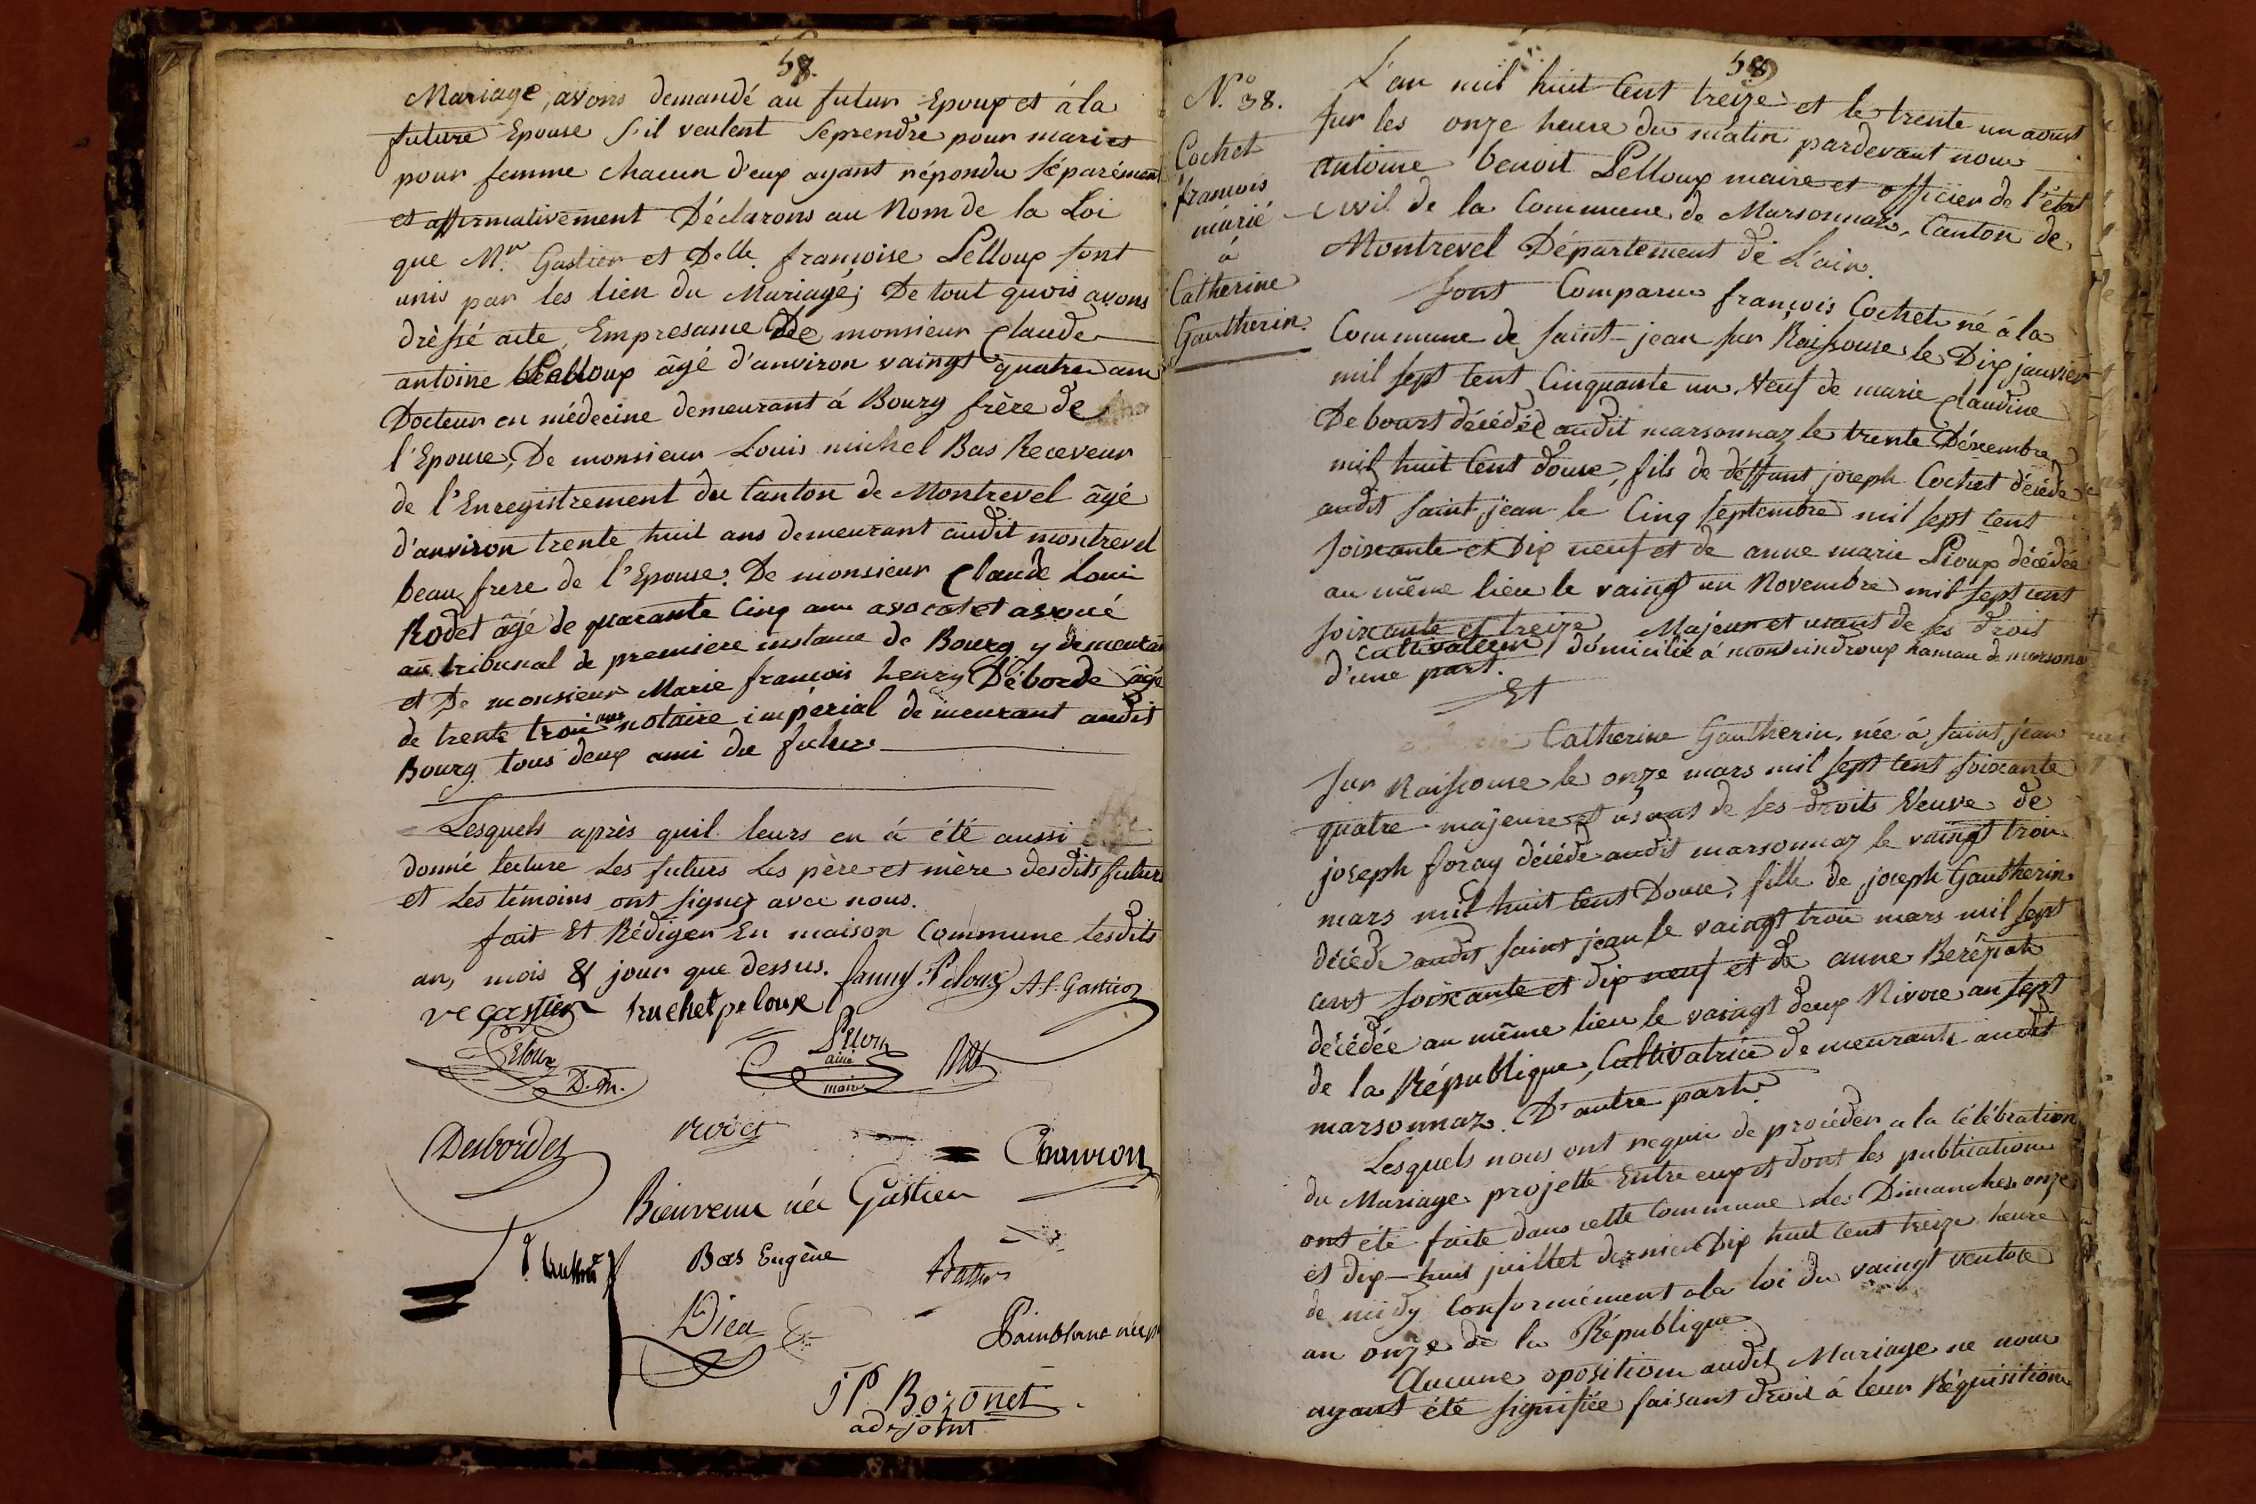 58.
Mariage, avons demandé au futur Epoux et à la
future Epouse s'il veulent seprendre pour mari et
pour femme chacun d'eux ayant répondu séparément
et affirmativement Déclarons au Nom de la Loi
que Mr. Gastier et Delle. françoise Pelloux sont
unis par les lien du Mariage; De tout quois avons
dréssé acte, Empresame De monsieur Claude
antoine Pelloux âgé d'anviron vaingt quatre ans
Docteur en médecine demeurant à Bourg frère de
l'Epouse, De monsieur Louis michel Bas Receveur
de l'Enregistrement du Canton de Montrevel âgé
d'anviron trente huit ans demeurant audit montrevel
beau frere de l'Epouse. De monsieur Claude Loui
Rodet âgé de quarante Cinq ans avocat et avoué
au tribunal de premiere instance de Bourg y demeurant
et De monsieur Marie francois henry Déborde âgé
de trente troi ans notaire impérial demeurant audit
Bourg tous deux ami du futur
Lesquels après quil leurs en á été aussi
donné lecture les futurs les père et mère desdits futurs
et les témoins ont signez avec nous.
fait Et Rédiger En maison Commune lesdits
an, mois & jour que dessus. fanny Peloux A.f. Gastier
ve gastier truchet peloux
Peloux D.m.
Peloux ainé maire Bas
Desbordes Rodet Chauvon
Bienvenu née Gastier
Bas Eugène
Dica
Painblanc née
J P. Bozonet
adjoint
58
N.o 38.
Cochet
francois
marié
à
Catherine
Gautherin.
L'an mil huit Cent treize et le trente un aoust
sur les onze heure du matin pardevant nous
antoine benoit Pelloux maire et officier de l'état
civil de la Commune de Marsonnaz, Canton de
Montrevel Département de L'ain.
Sont Comparus françois Cochet né à la
Commune de saint-jean sur Raissouse le Dix janvier
mil sept Cent Cinquante un. Veuf de marie Claudine
De bourt décédée audit marsonnaz le trente Décembre
mil huit Cent douse, fils de deffunt joseph Cochet décédé
audit saint jean le Cinq septembre mil sept cent
soixante et Dix neuf et de anne marie Pioux décédée
au même lieu le vaingt un Novembre mil sept cent
soixante et treize Majeur et usant de ses droit
cultivateur domicilié à hamau de marsona
d'une part.
Et
Catherine Gautherin, née à saint jean
sur Raissouse le onze mars mil sept Cent soixante
quatre majeure et usant de ses droits Veuve de
joseph foray décédé audit marsonnaz le vaingt trois
mars mil huit Cent Douse, fille de joseph Gautherin
décédé audit saint jean le vaingt trois mars mil sept
cent soixante et dix neuf et de anne Berépiat
décédée au même lieu le vaingt deux Nivose an sept
de la République, Cultivatrice demeurante audit
marsonnaz. D'autre part.
Lesquels nous ont requis de procéder a la célébration
du Mariage projetté Entre eux et dont les publication
ont été faite dans cette Commune les Dimanches onze
et dix-huit juillet dernier Dix huit Cent treize heure
de midy Conformément ala loi du vaingt ventose
an onze de la République
Aucune opositions audit Mariage ne nous
ayant été signifiée faisant droit à leur Réquisition